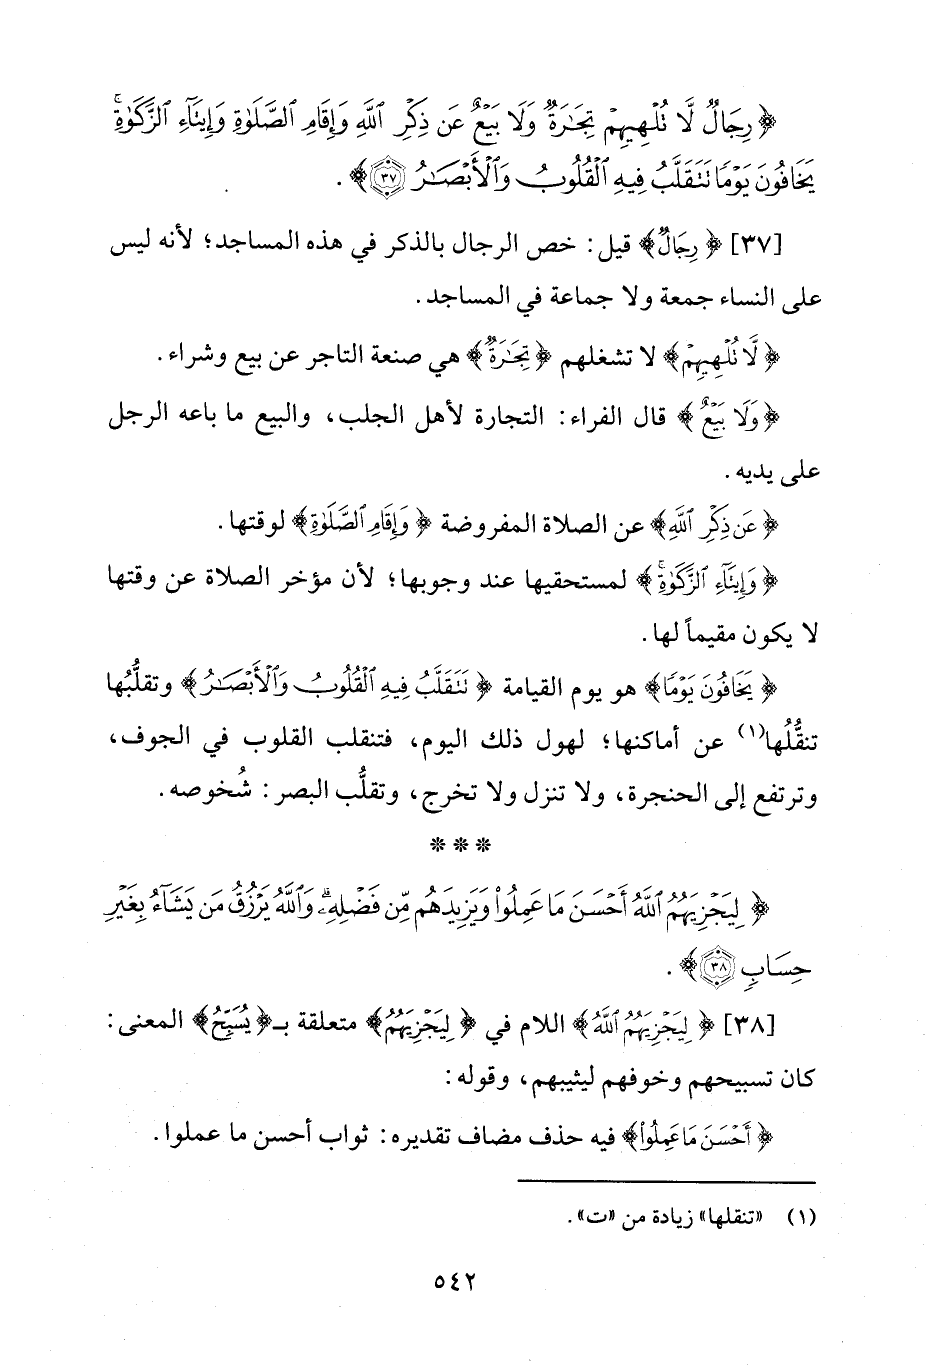 ﴿رِجَالٌ لَّا تُلْهِيهِمْ تِجَٰرَةٌ وَلَا بَيْعٌ عَن ذِكْرِ ٱللَّهِ وَإِقَامِ ٱلصَّلَوٰةِ وَإِيتَآءِ ٱلزَّكَوٰةِۙ
يَخَافُونَ يَوْمًا تَتَقَلَّبُ فِيهِ ٱلْقُلُوبُ وَٱلْأَبْصَٰرُ ٣٧﴾.
[٣٧] ﴿رِجَالٌ﴾ قيل: خص الرجال بالذكر في هذه المساجد؛ لأنه ليس
على النساء جمعة ولا جماعة في المساجد.
﴿لَّا تُلْهِيهِمْ﴾ لا تشغلهم ﴿تِجَٰرَةٌ﴾ هي صنعة التاجر عن بيع وشراء.
﴿وَلَا بَيْعٌ﴾ قال الفراء: التجارة لأهل الجلب، والبيع ما باعه الرجل
على يديه.
﴿عَن ذِكْرِ ٱللَّهِ﴾ عن الصلاة المفروضة ﴿وَإِقَامِ ٱلصَّلَوٰةِ﴾ لوقتها.
﴿وَإِيتَآءِ ٱلزَّكَوٰةِۙ﴾ لمستحقيها عند وجوبها؛ لأن مؤخر الصلاة عن وقتها
لا يكون مقيماً لها.
﴿يَخَافُونَ يَوْمًا﴾ هو يوم القيامة ﴿تَتَقَلَّبُ فِيهِ ٱلْقُلُوبُ وَٱلْأَبْصَٰرُ﴾ وتقلُّبُها
تنقُّلُها(١) عن أماكنها؛ لهول ذلك اليوم، فتنقلب القلوب في الجوف،
وترتفع إلى الحنجرة، ولا تنزل ولا تخرج، وتقلُّب البصر: شُخوصه.
* * *
﴿لِيَجْزِيَهُمُ ٱللَّهُ أَحْسَنَ مَا عَمِلُوا۟ وَيَزِيدَهُم مِّن فَضْلِهِۦۗ وَٱللَّهُ يَرْزُقُ مَن يَشَآءُ بِغَيْرِ
حِسَابٍ ٣٨﴾.
[٣٨] ﴿لِيَجْزِيَهُمُ ٱللَّهُ﴾ اللام في ﴿لِيَجْزِيَهُمُ﴾ متعلقة بـ﴿يُسَبِّحُ﴾ المعنى:
كان تسبيحهم وخوفهم ليثيبهم، وقوله:
﴿أَحْسَنَ مَا عَمِلُوا۟﴾ فيه حذف مضاف تقديره: ثواب أحسن ما عملوا.
(١) «تنقلها» زيادة من «ت».
٥٤٢